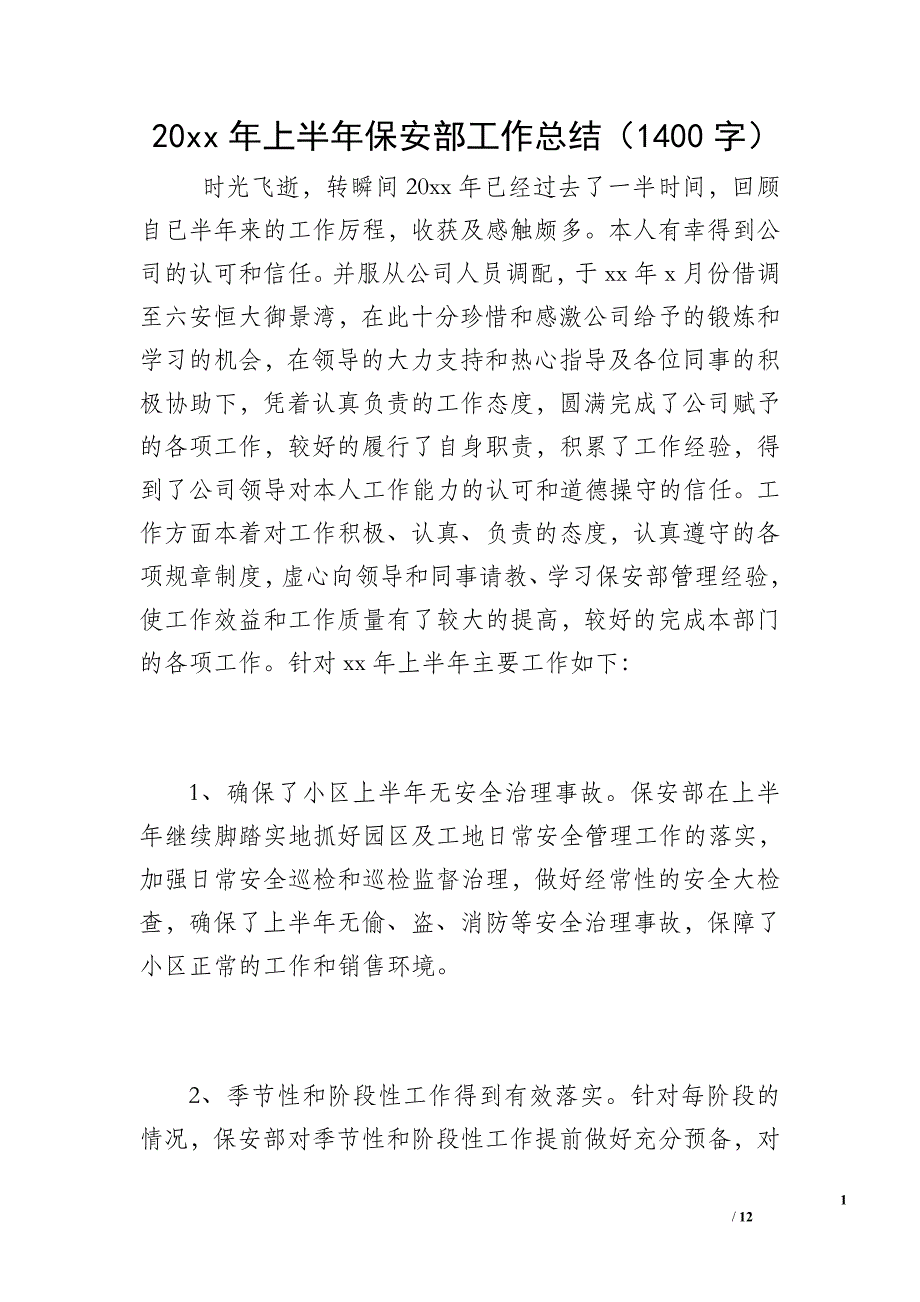 20xx 年上半年保安部工作总结（1400 字）
时光飞逝，转瞬间 20xx 年已经过去了一半时间，回顾
自已半年来的工作厉程，收获及感触颇多。本人有幸得到公
司的认可和信任。并服从公司人员调配，于 xx 年 x 月份借调
至六安恒大御景湾，在此十分珍惜和感激公司给予的锻炼和
学习的机会，在领导的大力支持和热心指导及各位同事的积
极协助下，凭着认真负责的工作态度，圆满完成了公司赋予
的各项工作，较好的履行了自身职责，积累了工作经验，得
到了公司领导对本人工作能力的认可和道德操守的信任。工
作方面本着对工作积极、认真、负责的态度，认真遵守的各
项规章制度，虚心向领导和同事请教、学习保安部管理经验，
使工作效益和工作质量有了较大的提高，较好的完成本部门
的各项工作。针对 xx 年上半年主要工作如下：
1、确保了小区上半年无安全治理事故。保安部在上半
年继续脚踏实地抓好园区及工地日常安全管理工作的落实，
加强日常安全巡检和巡检监督治理，做好经常性的安全大检
查，确保了上半年无偷、盗、消防等安全治理事故，保障了
小区正常的工作和销售环境。
2、季节性和阶段性工作得到有效落实。针对每阶段的
情况，保安部对季节性和阶段性工作提前做好充分预备，对
1
/ 12